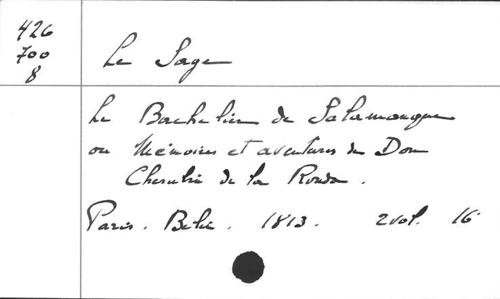 426
700
8
Le Sage
Le Bachelier de Salamanque
ou Mémoires et aventures de Don
Cherubin de la Ronda.
Paris. Belin. 1813. 2 vol. 16